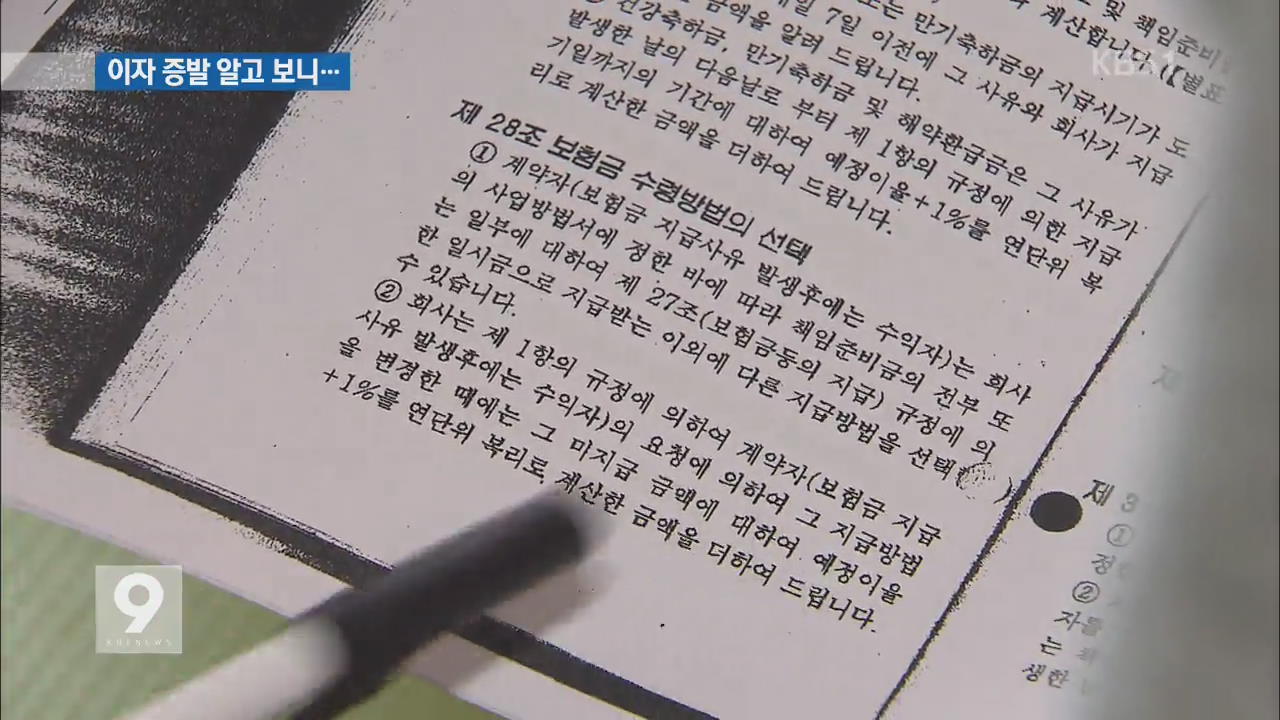 이자 증발 알고 보니…
KBS1
및 책임준비
계산합니다. (【별표
도는 만기축하금의 지급시기가 도
7일 이전에 그 사유와 회사가 지급
금액을 알려 드립니다.
건강축하금, 만기축하금 및 해약환급금은 그 사유가
발생한 날의 다음날로 부터 제 1항의 규정에 의한 지급
기일까지의 기간에 대하여 예정이율+1%를 연단위 복
리로 계산한 금액을 더하여 드립니다.
제 28조 보험금 수령방법의 선택
① 계약자(보험금 지급사유 발생후에는 수익자)는 회사
의 사업방법서에 정한 바에 따라 책임준비금의 전부 또
는 일부에 대하여 제 27조(보험금등의 지급) 규정에 의
한 일시금으로 지급받는 이외에 다른 지급방법을 선택
수 있습니다.
② 회사는 제 1항의 규정에 의하여 계약자(보험금 지급
사유 발생후에는 수익자)의 요청에 의하여 그 지급방법
을 변경한 때에는 그 미지급 금액에 대하여 예정이율
+1%를 연단위 복리로 계산한 금액을 더하여 드립니다.
제 3
①
정
②
자를
는
생한
9
KBS NEWS